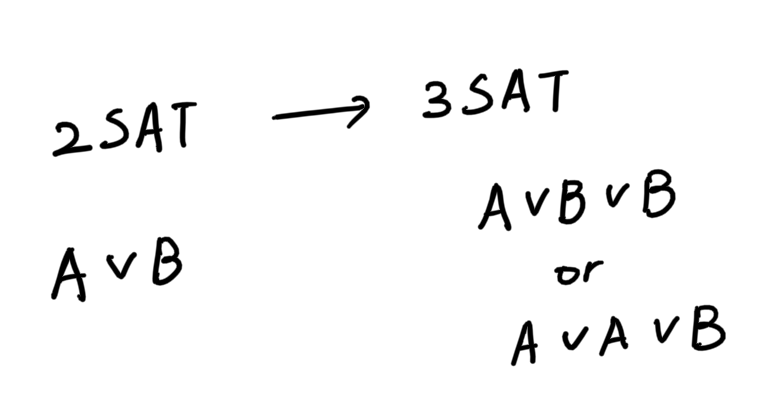 2SAT → 3SAT
A ∨ B
A ∨ B ∨ B
or
A ∨ A ∨ B